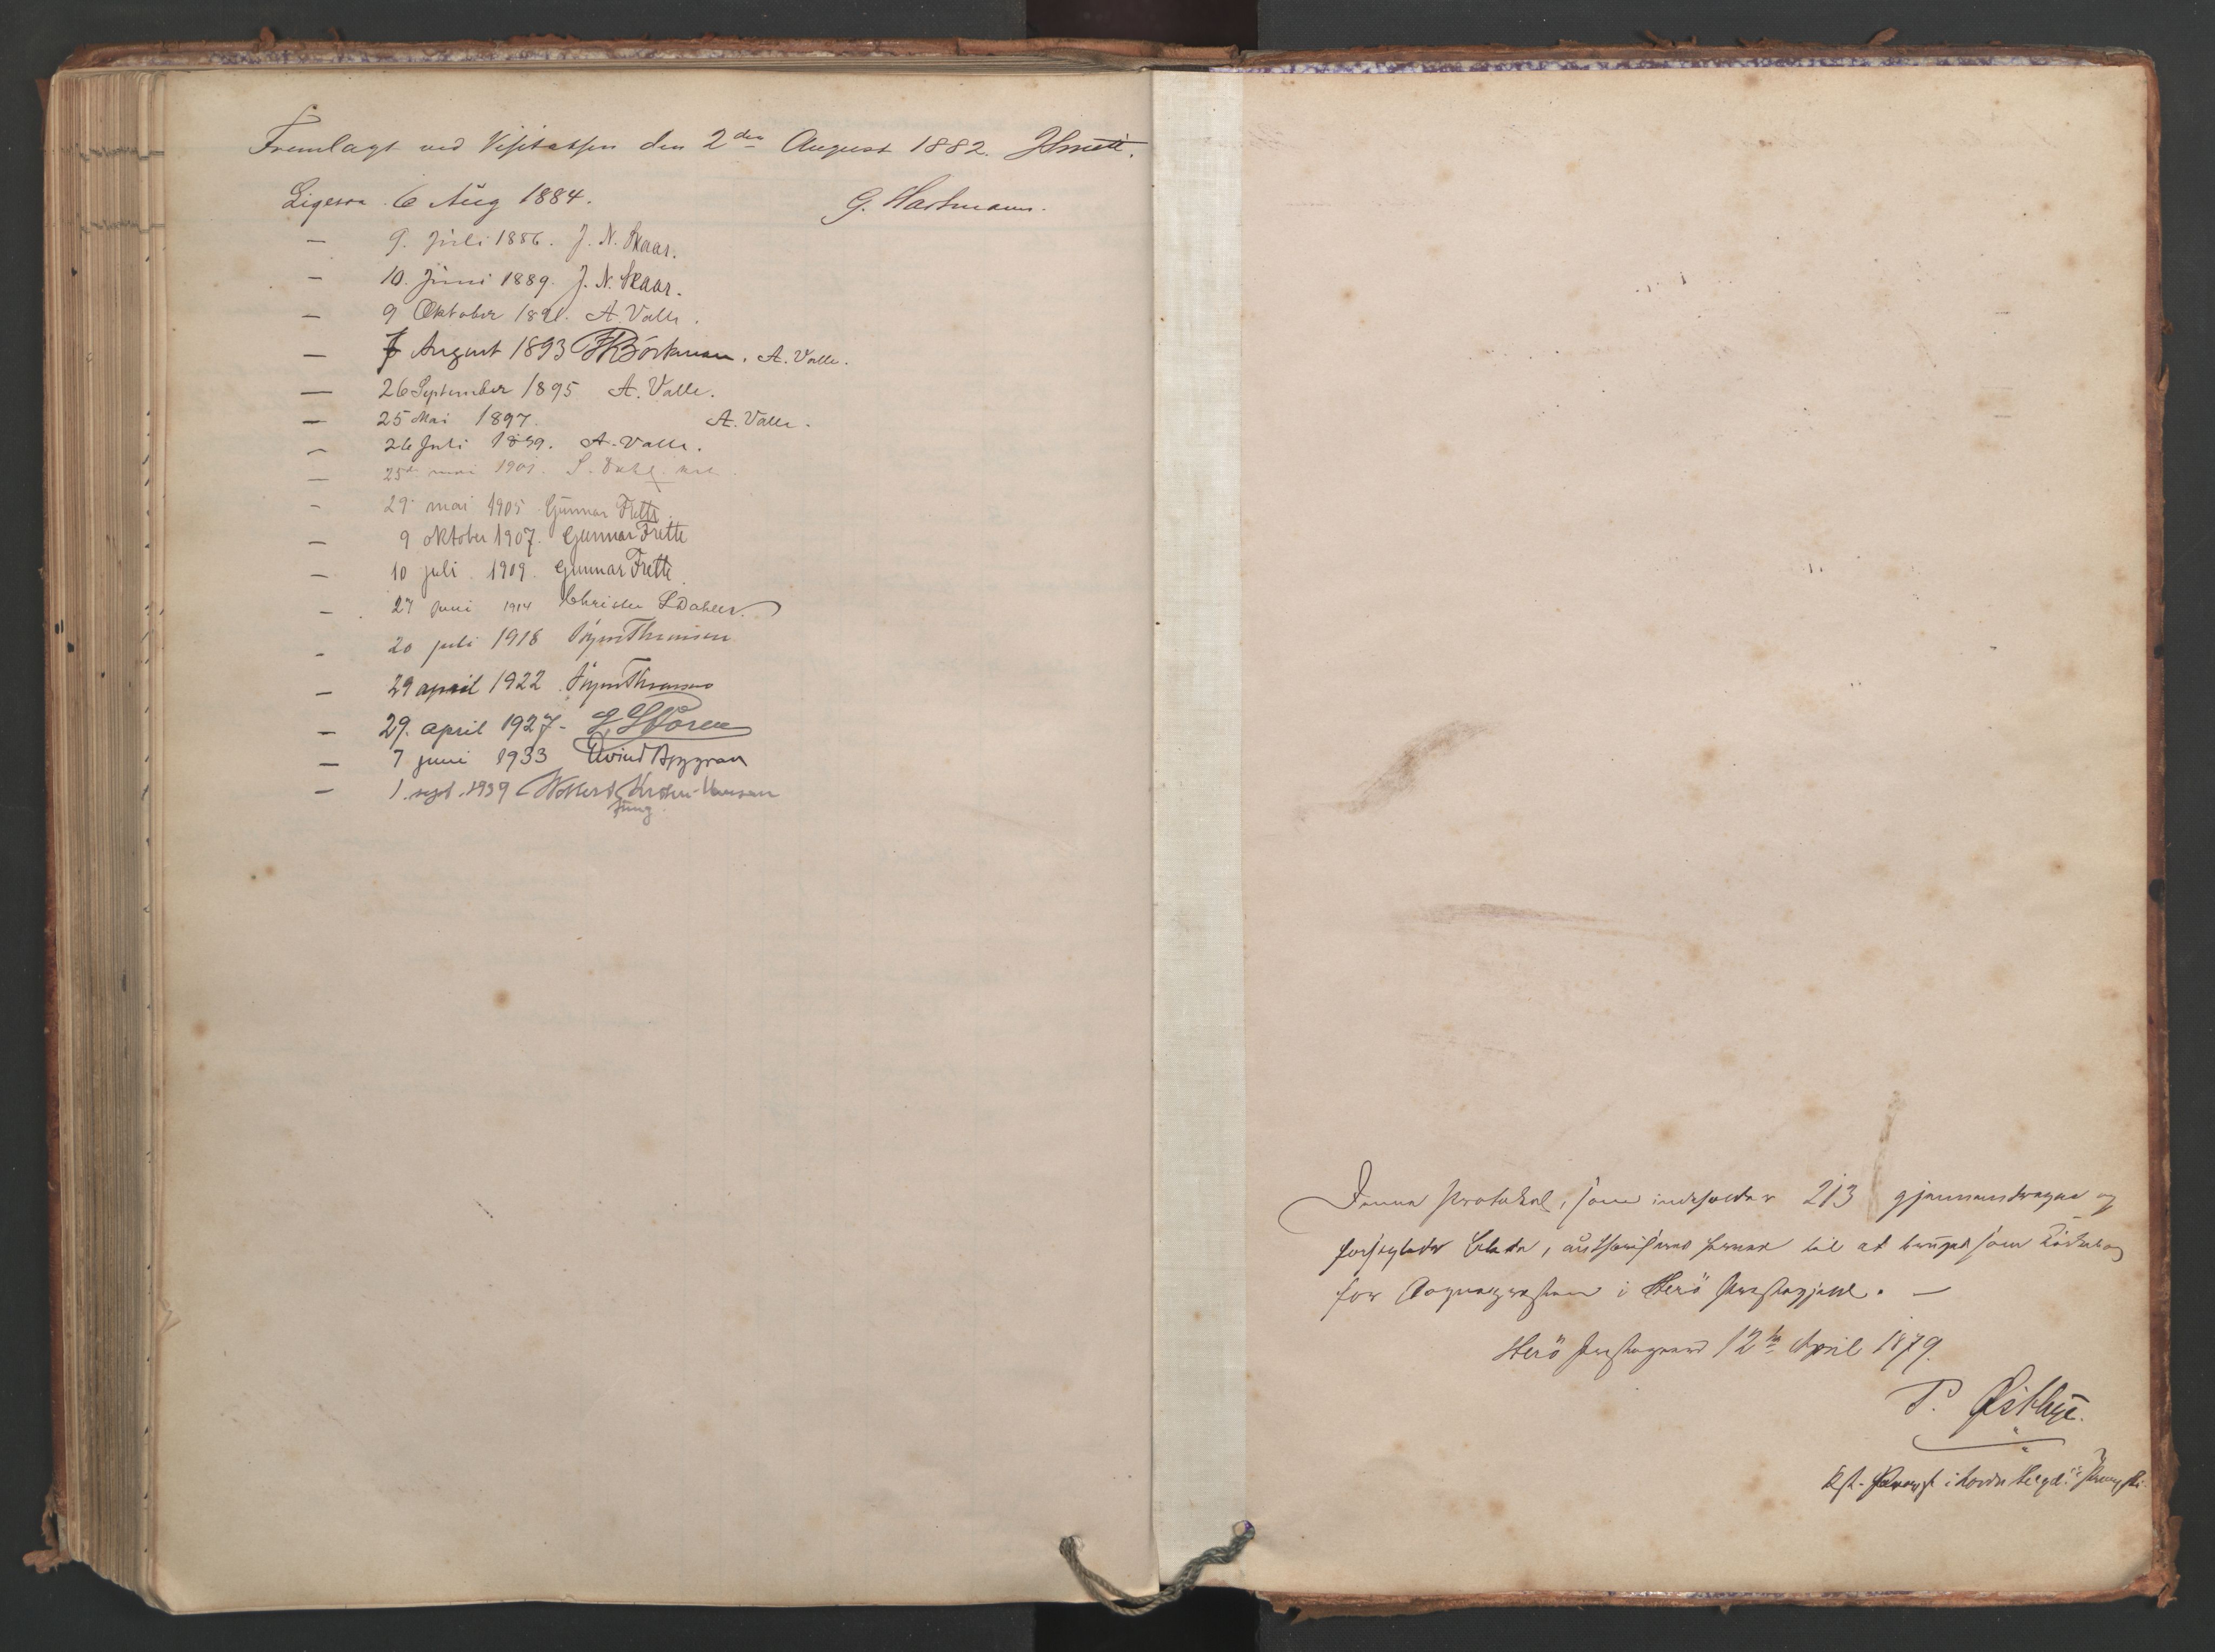 Fremlagt ved Visitatsen den 2den August 1882. JSmitt.
Ligesaa 6 Aug 1884. G. Hartmann.
— 9. Juli 1886. J. N. Skaar.
— 10. Juni 1889. J. N. Skaar.
— 9 Oktober 1891. A. Valle.
— August 1893 Böckman. A. Valle.
— 26 September 1895 A. Valle.
— 25 Mai 1897. A. Valle.
— 26 Juli 1899. A. Valle.
— 25de mai 1901.
— 29 mai 1905 Gunnar Frette.
— 9 oktober 1907. Gunnar Frette
— 10 juli 1909. Gunnar Frette
— 27 juni 1914
— 20 juli 1918
— 29 april 1922
— 29. april 1927 -
— 7 juni 1933 Eivind Berggrav
— 1. sept. 1939 Wollert Krohn-Hansen
Denne Protokol, som indeholder 213 gjennemdragne og
forseglede Blade, authoriseres herved til at bruges som Kirkebog
for Sognepræsten i Herö Præstegjeld. —
Herö Præstegaard 12te April 1879.
P. Østbye.
Kst. Provst i Nordre Helgel.s Provsti.